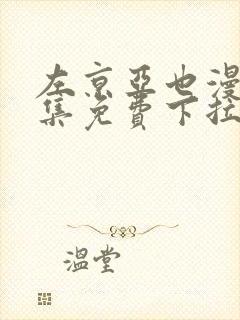 左京亚也漫
集免费下拉
温堂